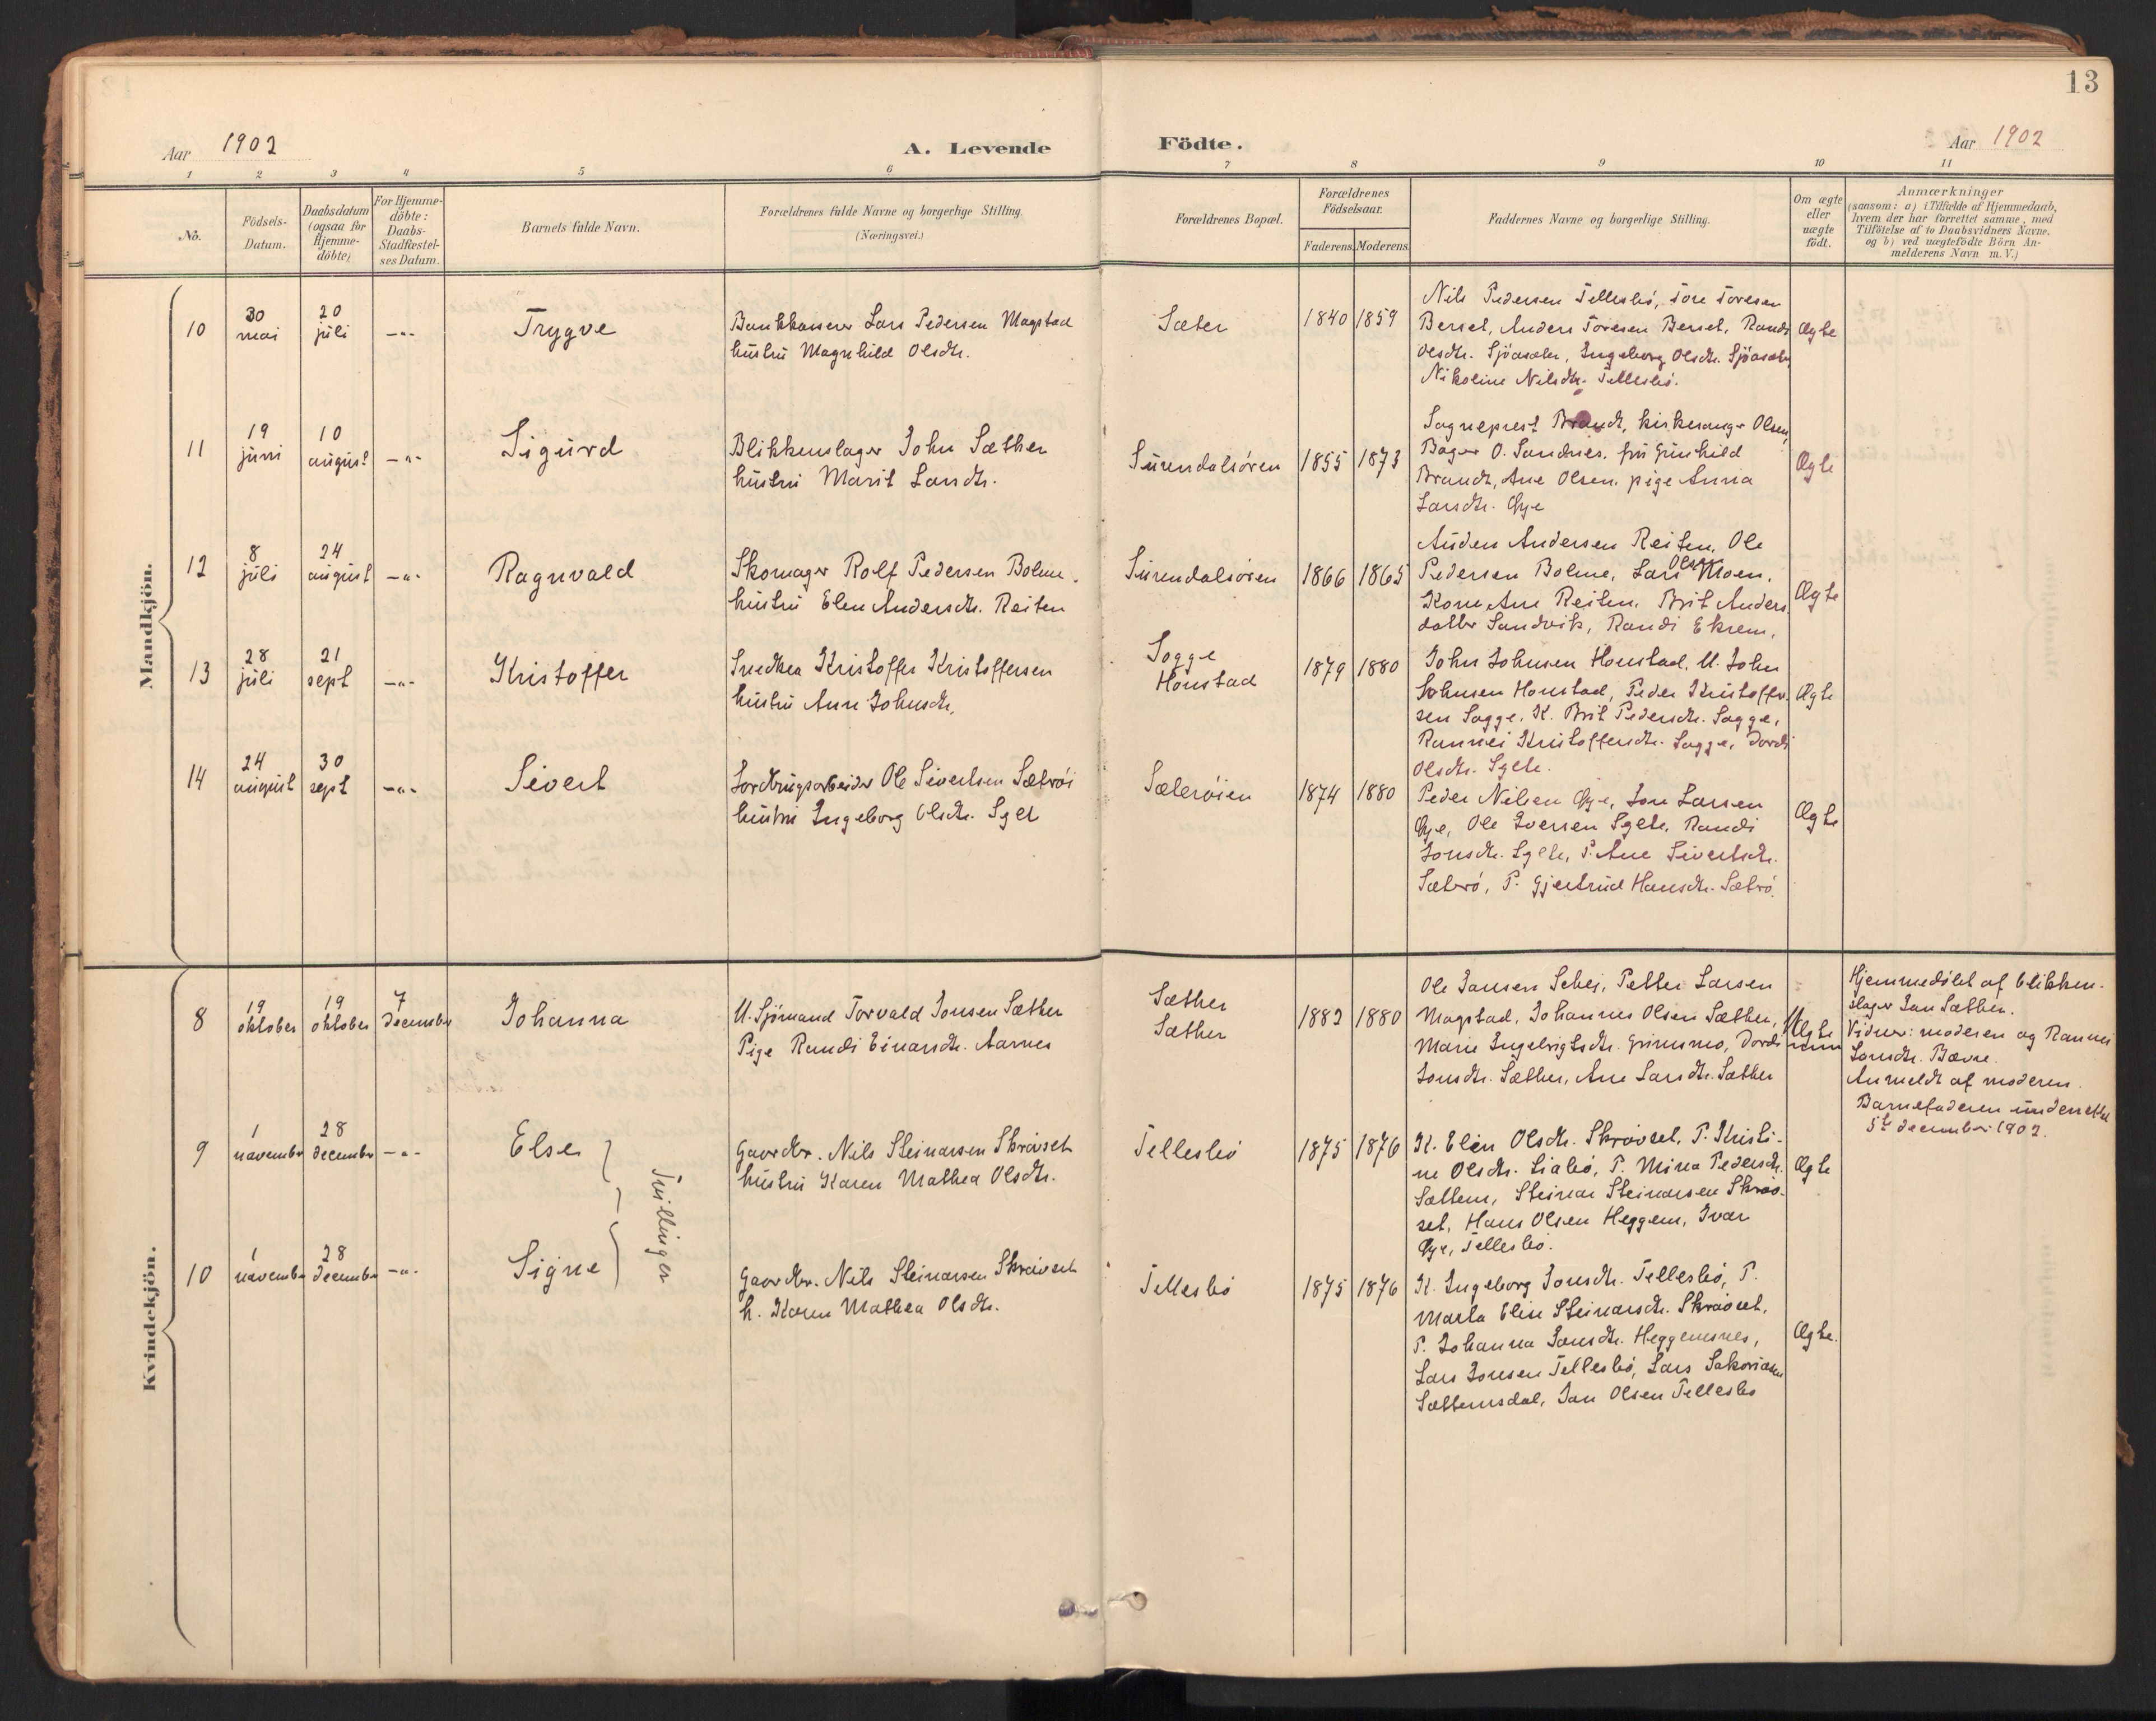 13
Aar 1902
A. Levende
Födte.
Aar 1902
1 2 3 4 5 6 7 8 9 10 11
No.
Födsels-
Datum.
Daabsdatum
(ogsaa for
Hjemme-
döbte)
For Hjemme-
döbte:
Daabs-
Stadfæstel-
ses Datum.
Barnets fulde Navn.
Forældrenes fulde Navne og borgerlige Stilling.
(Næringsvei.)
Forældrenes Bopæl.
Forældrenes
Födselsaar.
Faderens. Moderens.
Faddernes Navne og borgerlige Stilling.
Om ægte
eller
uægte
födt.
Anmærkninger
(saasom: a) i Tilfælde af Hjemmedaab,
hvem der har forrettet samme, med
Tilföielse af to Daabsvidners Navne.
og b) ved uægtefödte Börn An-
melderens Navn m.V.)
Mandkjön.
10
30
mai
20
juli
-"-
Trygve
Bankkasserer Lars Pedersen Magstad
hustru Magnhild Olsdtr.
Sæter
1840 1859
Nils Pedersen Tellesbö, Tore Toresen
Berset, Anders Toresen Berset, Randi
Olsdtr. Sjöasæter, Ingeborg Olsdtr. Sjöasæter
Nikoline Nilsdtr. Tellesbö.
Ægte
11
19
juni
10
august
-"-
Sigurd
Blikkenslager John Sæther
hustru Marit Larsdtr.
Surendalsören
1855 1873
Sogneprest Brandt, kirkesangr Olsen,
Bager O. Sandnes, fru Gunhild
Brandt, Ane Olsen, pige Anna
Larsdtr. Öye
Ægte
12
8
juli
24
august
-"-
Ragnvald
Skomager Rolf Pedersen Bolme.
hustru Elen Andersdtr. Reiten
Surendalsören
1866 1865
Auden Andersen Reiten, Ole
Pedersen Bolme, Lars Olsen Moen,
Kone Ane Reiten, Brit Anders
datter Sandvik, Randi Ekrem.
Ægte
13
28
juli
21
sept
-"-
Kristoffer
Snedker Kristoffer Kristoffersen
hustru Ane Johnsdtr.
Sogge
Honstad
1879 1880
John Johnsen Honstad, U. John
Johnsen Honstad, Peder Kristoffer-
sen Sogge, K. Brit Pedersdtr. Sogge,
Rannei Kristoffersdtr. Sogge, Dordi
Olsdtr. Sgete.
Ægte
14
24
august
30
sept
-"-
Sivert
Jordbrugsarbeider Ole Sivertsen Sæteröi
hustru Ingeborg Olsdtr. Sget
Sæteröien
1874 1880
Peder Nilsen Öye, Jon Larsen
Öye, Ole Iversen Sgete, Randi
Jonsdtr. Sgete, P. Ane Sivertsdtr.
Sæterö, P. Gjertrud Hansdtr. Sæterö.
Ægte
Kvindekjön.
8
19
oktober
19
oktober
7
december
Johanna
U. Sjömand Torvald Jonsen Sæther
Pige Randi Einarsdtr. Aarnes
Sæther
Sæther
1882 1880
Ole Jansen Schei, Petter Larsen
Magstad, Johannes Olsen Sæther,
Marie Ingebrigtsdtr. Grimsmo, Dordi
Jonsdtr. Sæther, Ane Larsdtr. Sæther
Uægte
Hjemmedöbt af blikken-
slager Jan Sæther.
Vidner: moderen og Rannei
Jonsdtr. Bævre.
Anmeldt af moderen.
Barnefaderen underrettet
5te december 1902.
9
1
november
28
december
-"-
Else
Tvillinger
Gaardbr. Nils Steinarsen Skravset
hustru Karen Mathea Olsdtr.
Tellesbö
1875 1876
K. Elen Olsdtr. Skrövset, P. Kristi-
ne Olsdtr. Liabö, P. Mina Pedersdtr.
Sættem, Steinar Steinarsen Skrav-
set, Hans Olsen Heggem, Ivar
Öye, Tellesbö.
Ægte
10
1
november
28
december
-"-
Signe
Gaardbr. Nils Steinarsen Skravset
h. Karen Mathea Olsdtr.
Tellesbö
1875 1876
K. Ingeborg Jonsdtr. Tellesbö, P.
Marta Elise Steinarsdtr. Skravset,
P. Johanna Jonsdtr. Heggemsnes,
Lars Jonsen Tellesbö, Lars Sakariasen
Sættemsdal, Jan Olsen Tellesbö
Ægte.